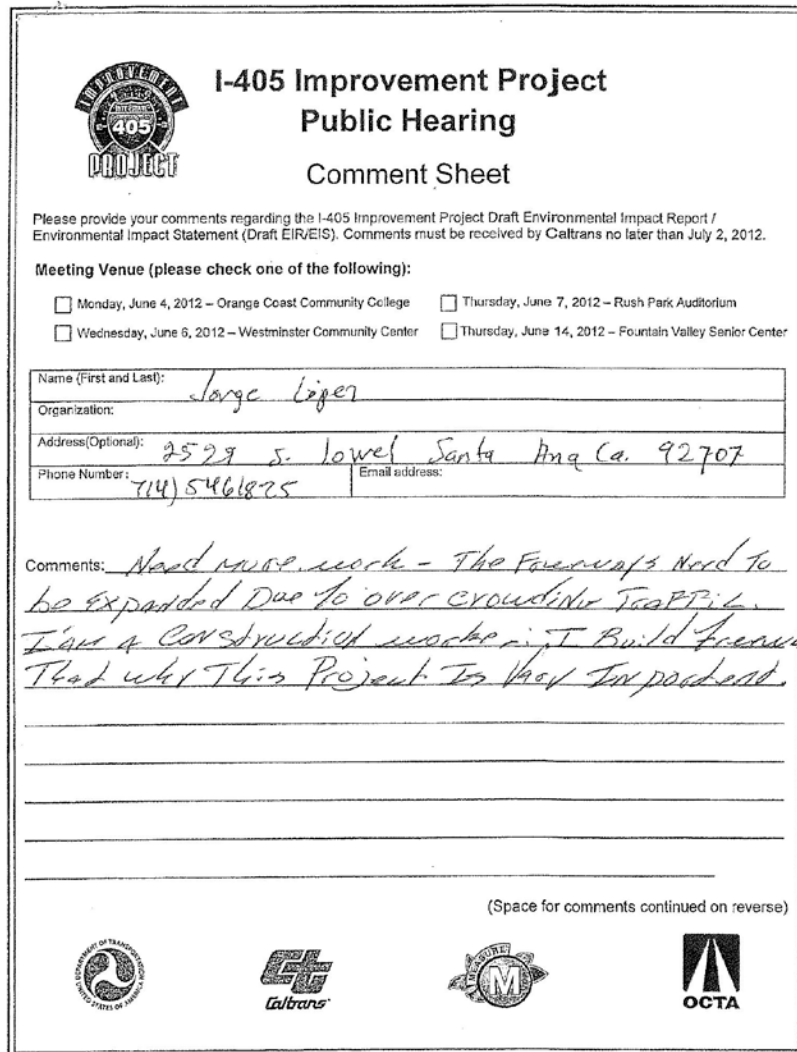 IMPROVEMENT
405
PROJECT
I-405 Improvement Project
Public Hearing
Comment Sheet
Please provide your comments regarding the I-405 Improvement Project Draft Environmental Impact Report /
Environmental Impact Statement (Draft EIR/EIS). Comments must be received by Caltrans no later than July 2, 2012.
Meeting Venue (please check one of the following):
Monday, June 4, 2012 – Orange Coast Community College
Thursday, June 7, 2012 – Rush Park Auditorium
Wednesday, June 6, 2012 – Westminster Community Center
Thursday, June 14, 2012 – Fountain Valley Senior Center
Name (First and Last): Jorge López
Organization:
Address(Optional): 2529 S. lowel Santa Ana Ca. 92707
Phone Number: 714) 5461825
Email address:
Comments: Need more work - The Freeways Need To
be Expanded Due To over crowding Traffic.
I am a Construction worker. I Build Freew
That why This Project Is Very Inportent.
(Space for comments continued on reverse)
DEPARTMENT OF TRANSPORTATION
UNITED STATES OF AMERICA
Caltrans
MEASURE
M
OCTA